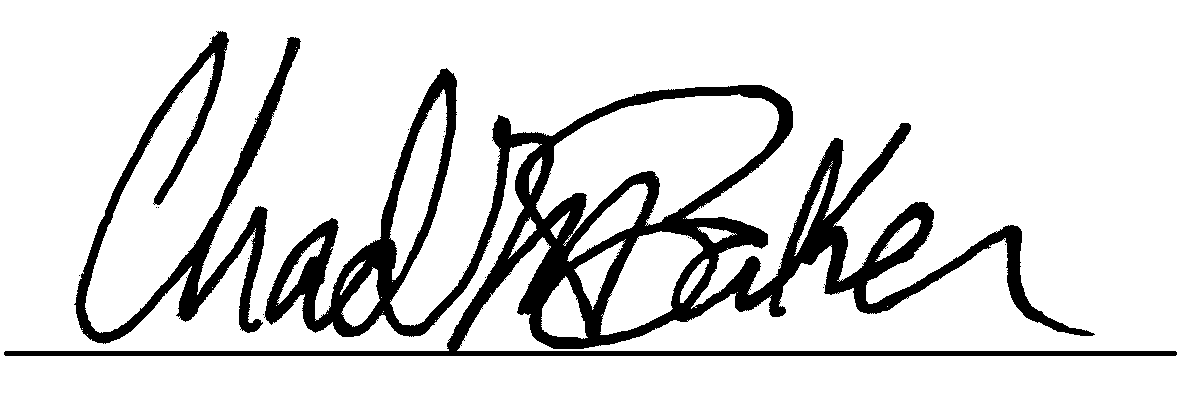 Chad M Baker